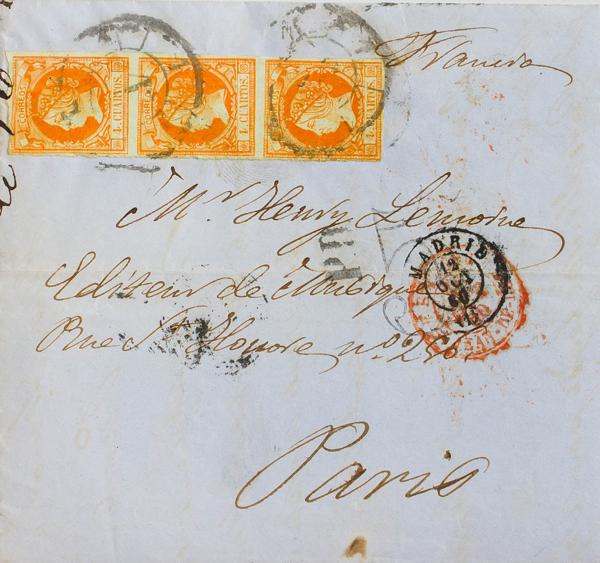 CORREOS 4 CUARTOS. CORREOS 4 CUARTOS. CORREOS 4 CUARTOS.
Francia
Mr. Henry Lemoine
Editeur de Musique
Rue St. Honoré nº 256
Paris
MADRID
12
OCT
60